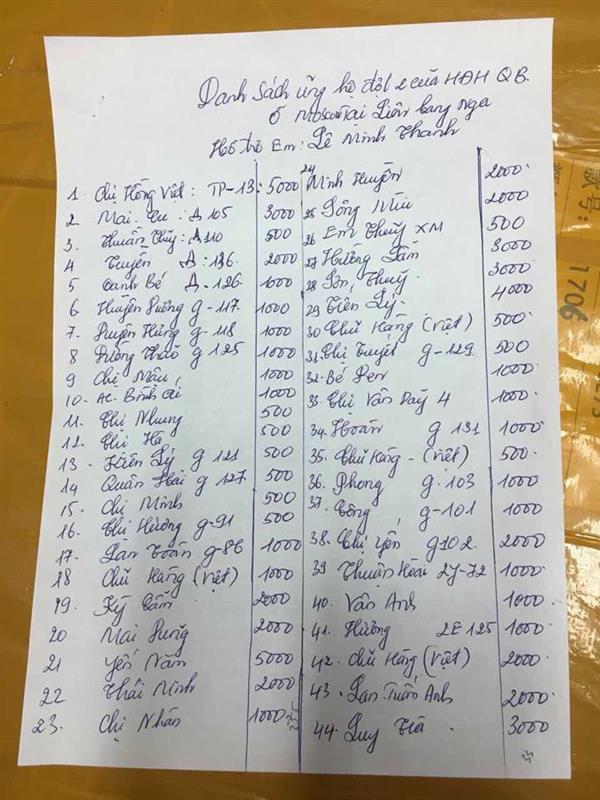 Danh Sách ủng hộ đợt 2 của HĐH QB.
Ở Moscow Tại Liên bang Nga
Hỗ trợ Em: Lê Minh Thanh
1. Chị Hồng Việt: TP-13: 5000
2. Mai. Cu. Д 105 3000
3. Thuần Thủy: Д 110 500
4 Tuyên Д: 136 2000
5 Oanh Bé Д. 126. 1000
6 Huyền Dương g-117 1000
7. Huyền Hùng g-118 1000
8 Dương Thảo g 125 1000
9 Chị Mậu 1000
10. AC. Bình 1000
11. Chị Nhung 500
12. Chị Hà 500
13. Hiền Lý g 121 500
14 Quân Hải g 127 500
15. Chị Minh 500
16. Chị Hương g-91 500
17. Lan Toàn g-86 1000
18 Chủ Hàng (Việt) 1000
19. Kỳ Cẩm 2000
20 Mai Dung 2000
21 Yến Năm 5000
22 Thái Minh 2000
23. Chị Nhàn 1000
24 Minh Huyền 2000
25 Sông Mùi 2000
26 Em Thủy XM 500
27 Hương Lâm 3000
28 Sơn Thủy 3000
29 Tiên Lý. 4000
30 Chủ Hàng (Việt) 500
31. Chị Tuyết g-129 500
32. Bé Pen 1000
33. Chị Vân Dãy 4 1000
34. Hoàn g 131 1000
35. Chủ Hàng - (Việt) 500.
36. Phong g. 103 1000
37. Công g-101 1000
38. Chị Yến g102. 2000
39. Thuận Hoài 2J-72 1000
40. Vân Anh 1000
41. Hương 2E125 1000
42. Chủ Hàng (Việt) 2000
43. Lan Tuấn Anh 2000
44. Quy Trà 3000
1706